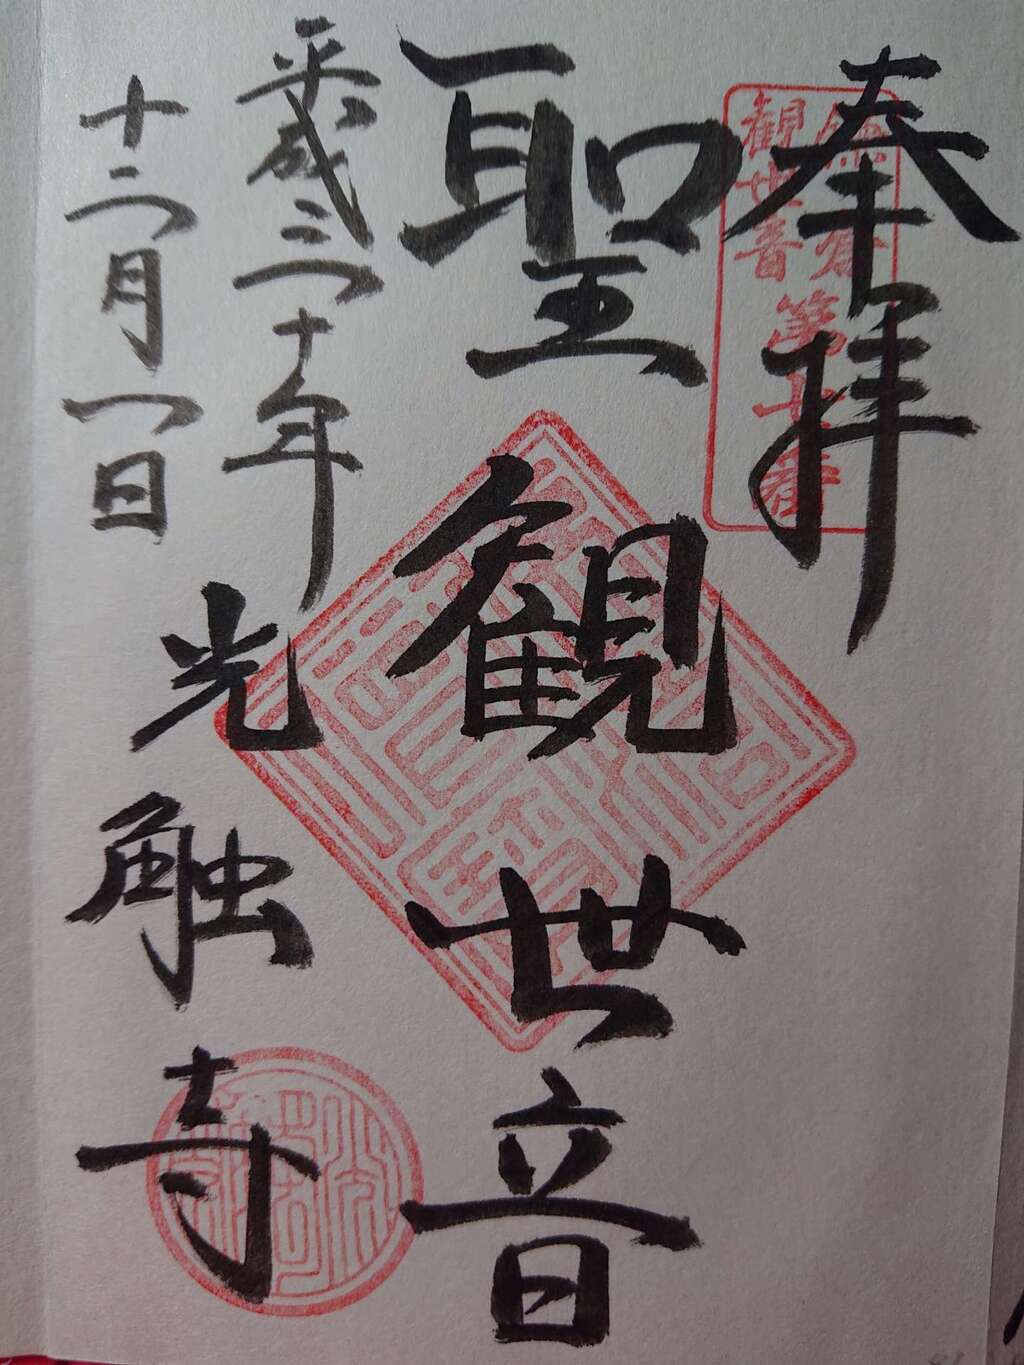 奉拝
観世音
第七番
聖観世音
平成三十年
十二月一日
光触寺